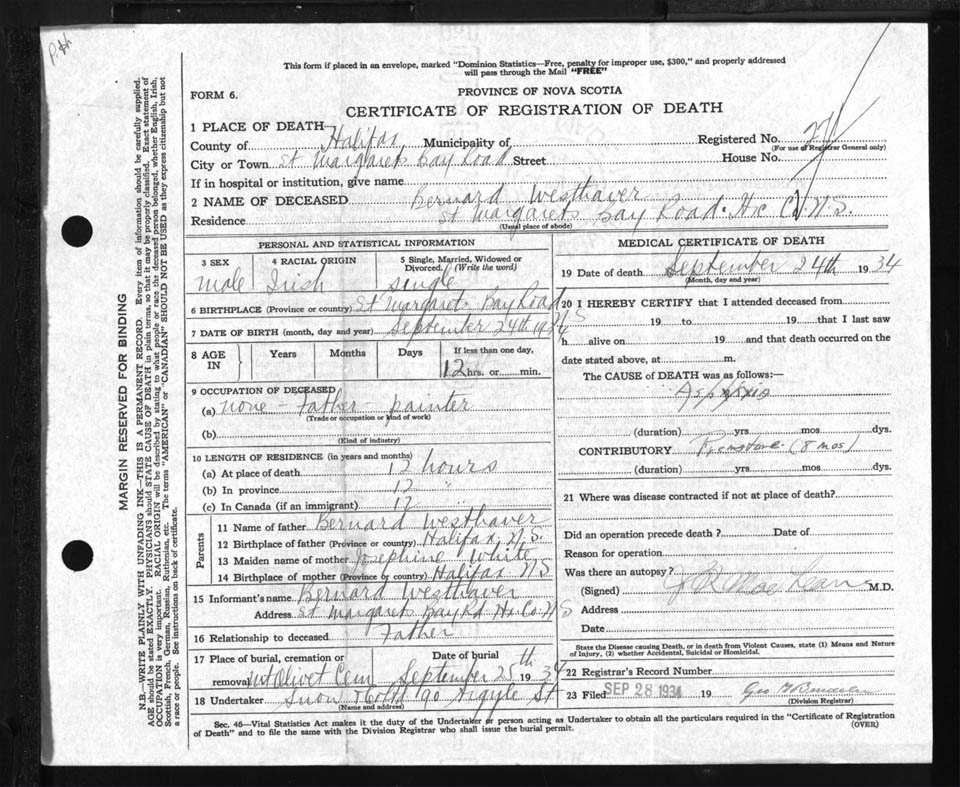 P.th
This form if placed in an envelope, marked "Dominion Statistics—Free, penalty for improper use, $300," and properly addressed
will pass through the Mail "FREE"
FORM 6.
PROVINCE OF NOVA SCOTIA
CERTIFICATE OF REGISTRATION OF DEATH
1 PLACE OF DEATH
County of Halifax Municipality of Registered No.
(For use of Registrar General only)
City or Town St Margarets Bay Road Street House No.
If in hospital or institution, give name
2 NAME OF DECEASED Bernard Westhaver
Residence St Margarets Bay Road. Hx Co. N.S.
(Usual place of abode)
PERSONAL AND STATISTICAL INFORMATION
3 SEX 4 RACIAL ORIGIN 5 Single, Married, Widowed or
Divorced. (Write the word)
male Irish single
6 BIRTHPLACE (Province or country) St Margarets Bay Road N S
7 DATE OF BIRTH (month, day and year) September 24th 1934
8 AGE IN Years Months Days If less than one day,
12 hrs. or min.
9 OCCUPATION OF DECEASED
(a) none - father - painter
(Trade or occupation or kind of work)
(b)
(Kind of industry)
10 LENGTH OF RESIDENCE (in years and months)
(a) At place of death 12 hours
(b) In province 12 "
(c) In Canada (if an immigrant) 12 "
Parents
11 Name of father Bernard Westhaver
12 Birthplace of father (Province or country) Halifax, N.S.
13 Maiden name of mother Josephine White
14 Birthplace of mother (Province or country) Halifax NS
15 Informant's name Bernard Westhaver
Address St Margarets Bay Rd Hx Co N S
16 Relationship to deceased Father
17 Place of burial, cremation or Date of burial
removal Mt Olivet Cem September 25th 1934
18 Undertaker Snow 90 Argyle St
(Name and address)
MEDICAL CERTIFICATE OF DEATH
19 Date of death September 24th 1934
(Month, day and year)
20 I HEREBY CERTIFY that I attended deceased from
19 to 19 that I last saw
h alive on 19 and that death occurred on the
date stated above, at m.
The CAUSE of DEATH was as follows:—
(duration) yrs. mos. dys.
CONTRIBUTORY (8 mos)
(duration) yrs. mos. dys.
21 Where was disease contracted if not at place of death?
Did an operation precede death? Date of
Reason for operation
Was there an autopsy?
(Signed) MacLean M.D.
Address
Date
State the Disease causing Death, or in death from Violent Causes, state (1) Means and Nature
of Injury, (2) whether Accidental, Suicidal or Homicidal.
22 Registrar's Record Number
23 Filed SEP 28 1934 19 Geo
(Division Registrar)
Sec. 46—Vital Statistics Act makes it the duty of the Undertaker or person acting as Undertaker to obtain all the particulars required in the "Certificate of Registration
of Death" and to file the same with the Division Registrar who shall issue the burial permit. (OVER)
MARGIN RESERVED FOR BINDING
N.B.—WRITE PLAINLY WITH UNFADING INK—THIS IS A PERMANENT RECORD. Every item of information should be carefully supplied.
AGE should be stated EXACTLY. PHYSICIANS should STATE CAUSE OF DEATH in plain terms, so that it may be properly classified. Exact statement of
OCCUPATION is very important. RACIAL ORIGIN will be described by stating to what people or race the deceased person belonged, whether English, Irish,
Scottish, French, German, Russian, Ruthenian, etc. The terms "AMERICAN" or "CANADIAN" SHOULD NOT BE USED as they express citizenship but not
a race or people. See instructions on back of certificate.